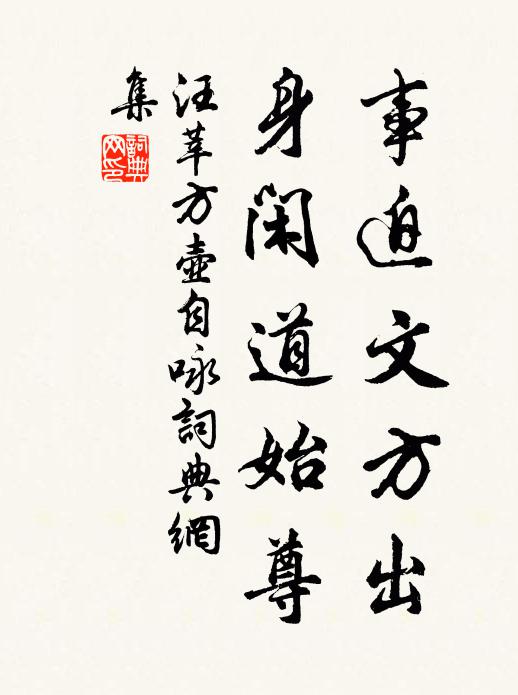 事迫文方出
身閑道始尊
汪莘方壺自咏詞典網
集
詞典網印